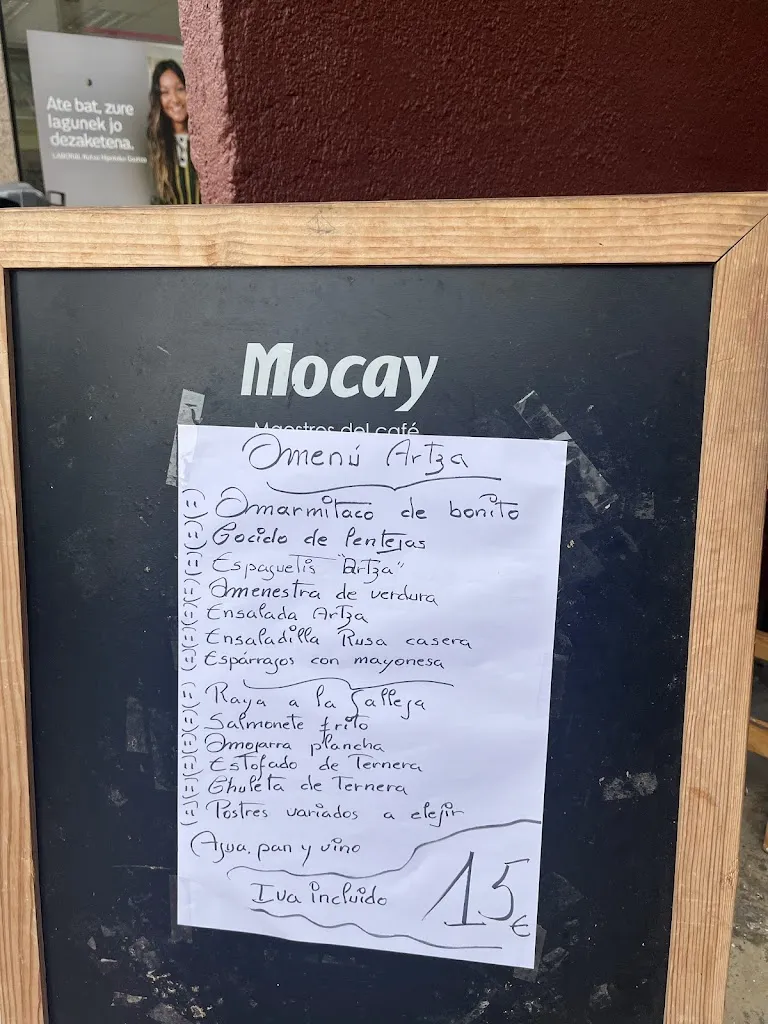 Ate bat, zure
lagunek jo
dezaketena.
LABORAL Kutxa
Mocay
Maestros del café
Menú Artza
(=) Marmitaco de bonito
(=) Cocido de lentejas
(=) Espaguetis "Artza"
(=) Menestra de verdura
(=) Ensalada Artza
(=) Ensaladilla Rusa casera
(=) Espárragos con mayonesa
(=) Raya a la Gallega
(=) Salmonete frito
(=) Mojarra plancha
(=) Estofado de Ternera
(=) Chuleta de Ternera
(=) Postres variados a elejir
Agua, pan y vino
Iva incluido 15€